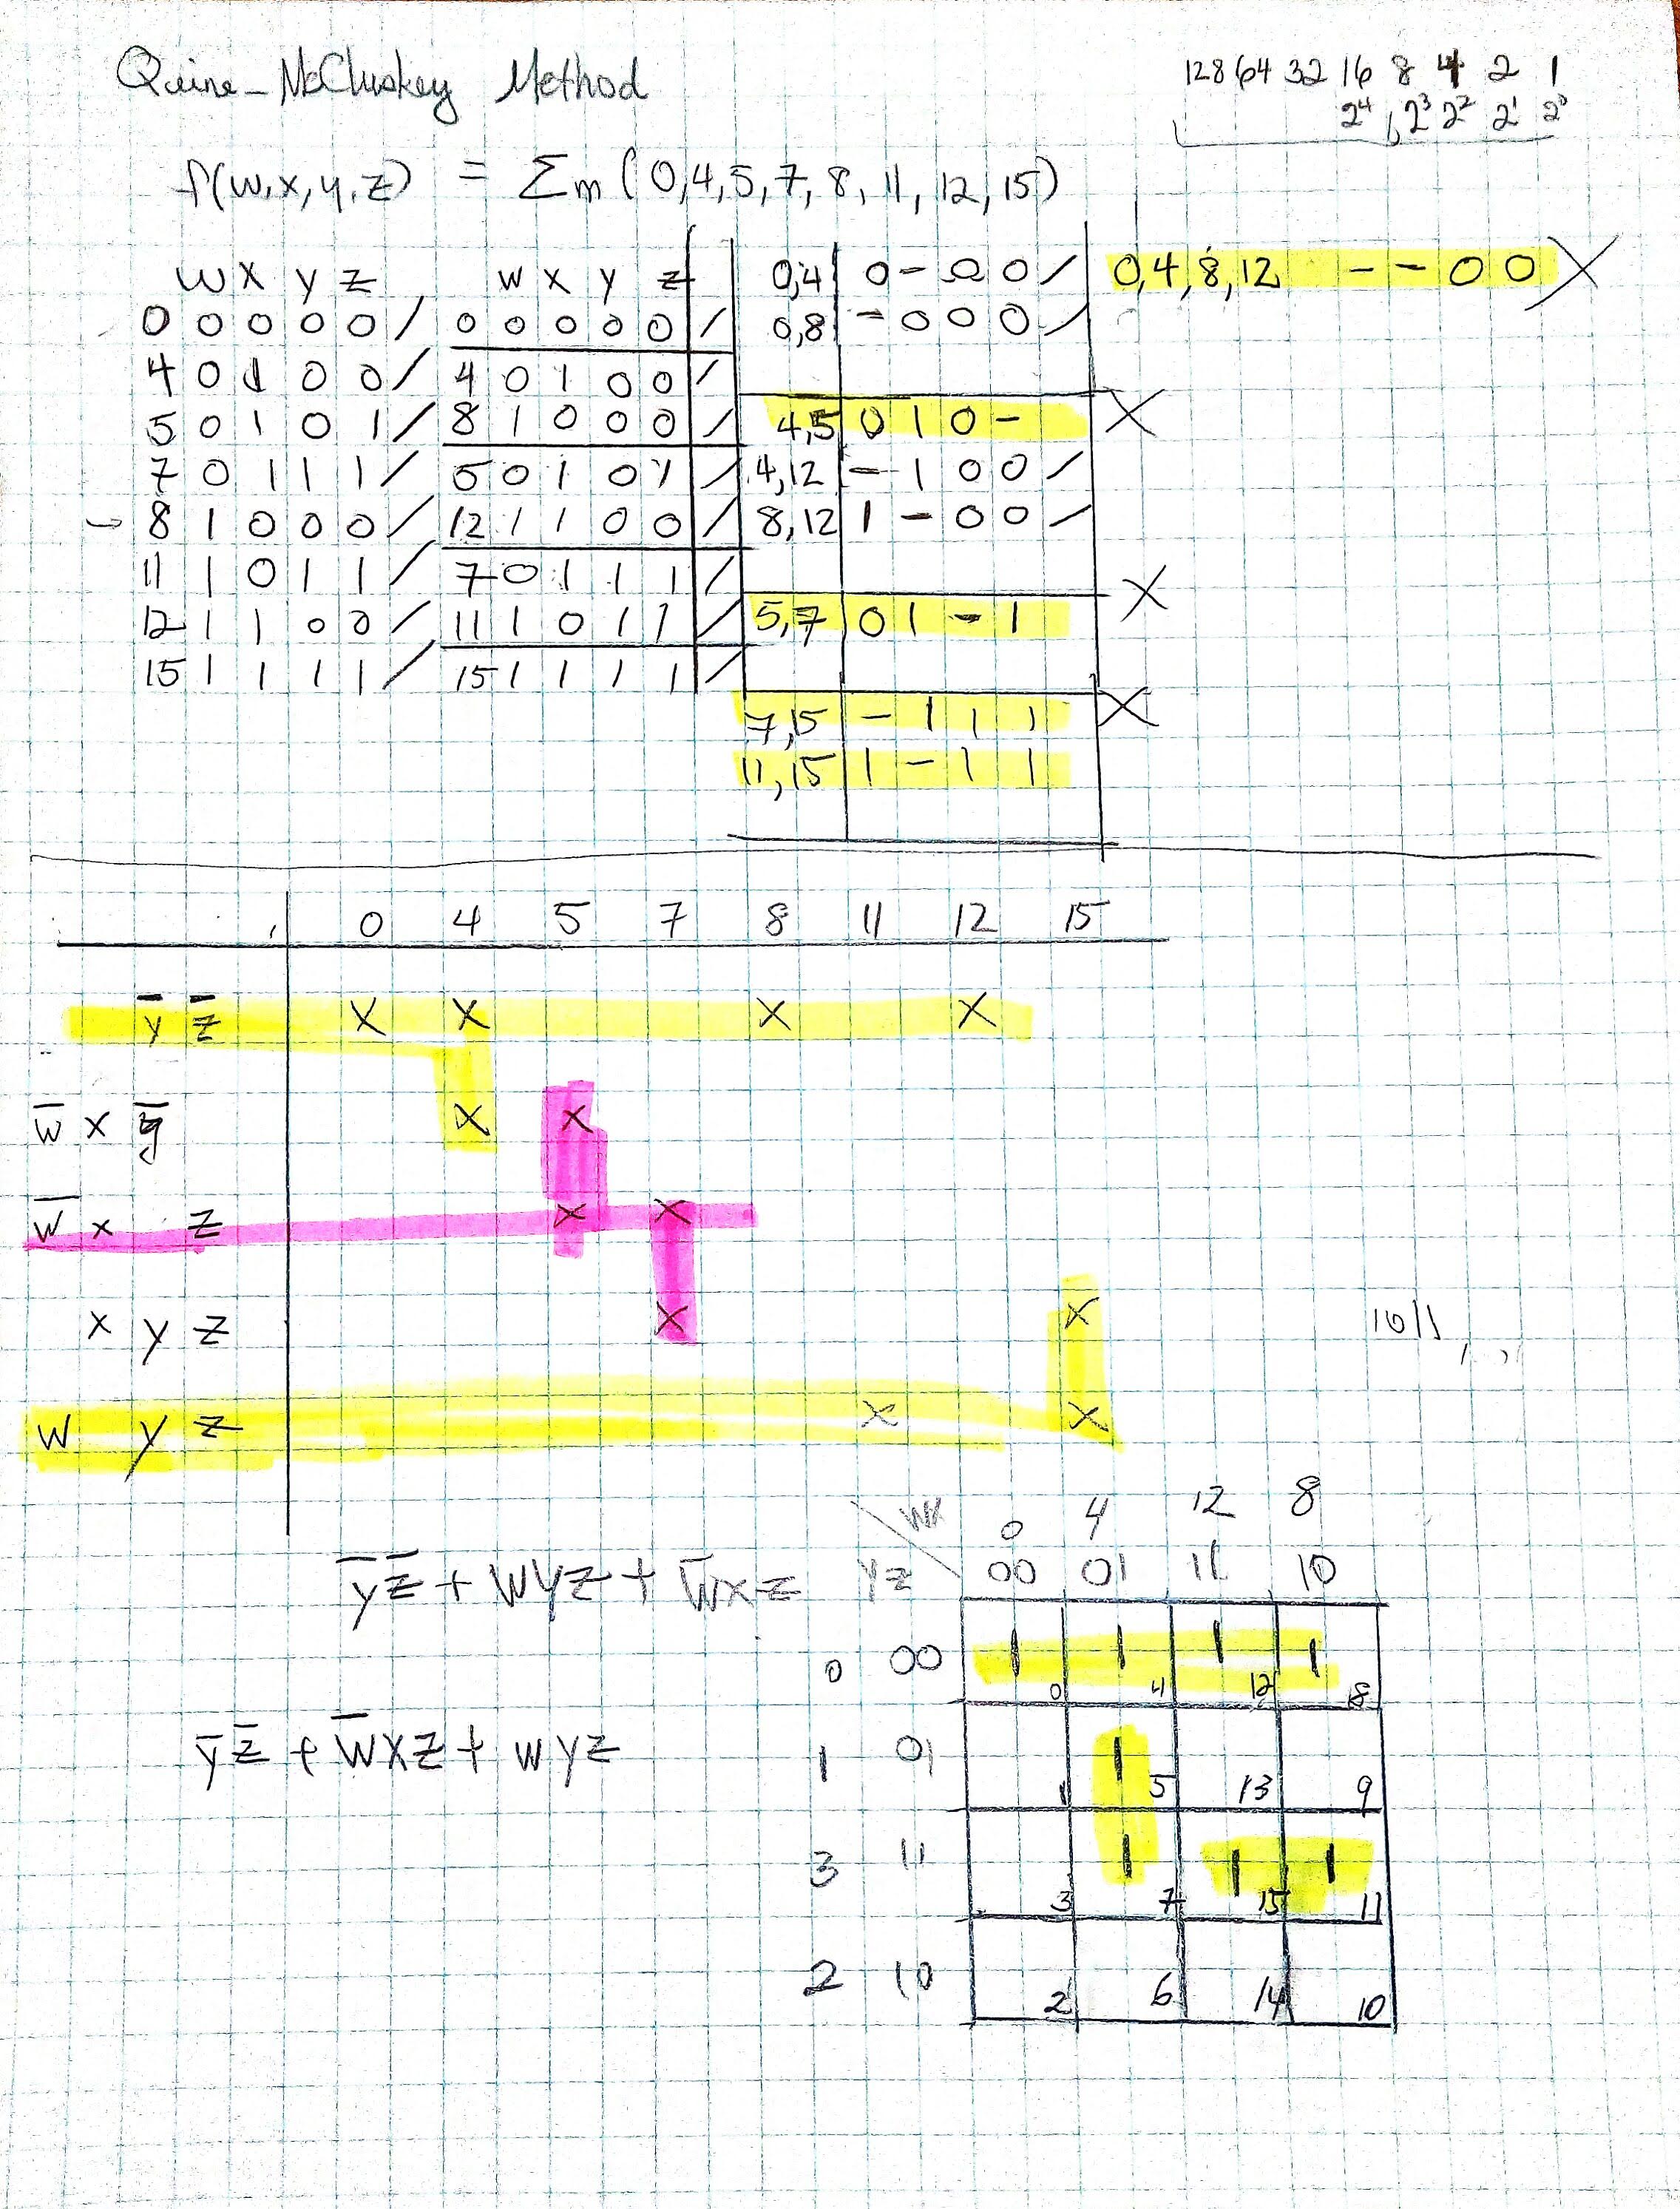 Quine-McCluskey Method
128 64 32 16 8 4 2 1
2⁴ 2³ 2² 2¹ 2⁰
f(w,x,y,z) = Σm (0,4,5,7,8,11,12,15)
w x y z
0 0 0 0 0 /
4 0 1 0 0 /
5 0 1 0 1 /
7 0 1 1 1 /
→ 8 1 0 0 0 /
11 1 0 1 1 /
12 1 1 0 0 /
15 1 1 1 1 /
w x y z
0 0 0 0 0 /
4 0 1 0 0 /
8 1 0 0 0 /
5 0 1 0 1 /
12 1 1 0 0 /
7 0 1 1 1 /
11 1 0 1 1 /
15 1 1 1 1 /
0,4 0 - 0 0 /
0,8 - 0 0 0 /
4,5 0 1 0 - X
4,12 - 1 0 0 /
8,12 1 - 0 0 /
5,7 0 1 - 1 X
7,15 - 1 1 1 X
11,15 1 - 1 1
0,4,8,12 - - 0 0 X
0 4 5 7 8 11 12 15
y̅ z̅ X X X X
w̅ x y̅ X X
w̅ x z X X
x y z X X
1011
w y z X X
y̅z̅ + wyz + w̅xz
y̅z̅ + w̅xz + wyz
0 4 12 8
wx
yz 00 01 11 10
0 00 1 1 1 1
0 4 12 8
1 01 1
1 5 13 9
3 11 1 1 1
3 7 15 11
2 10
2 6 14 10